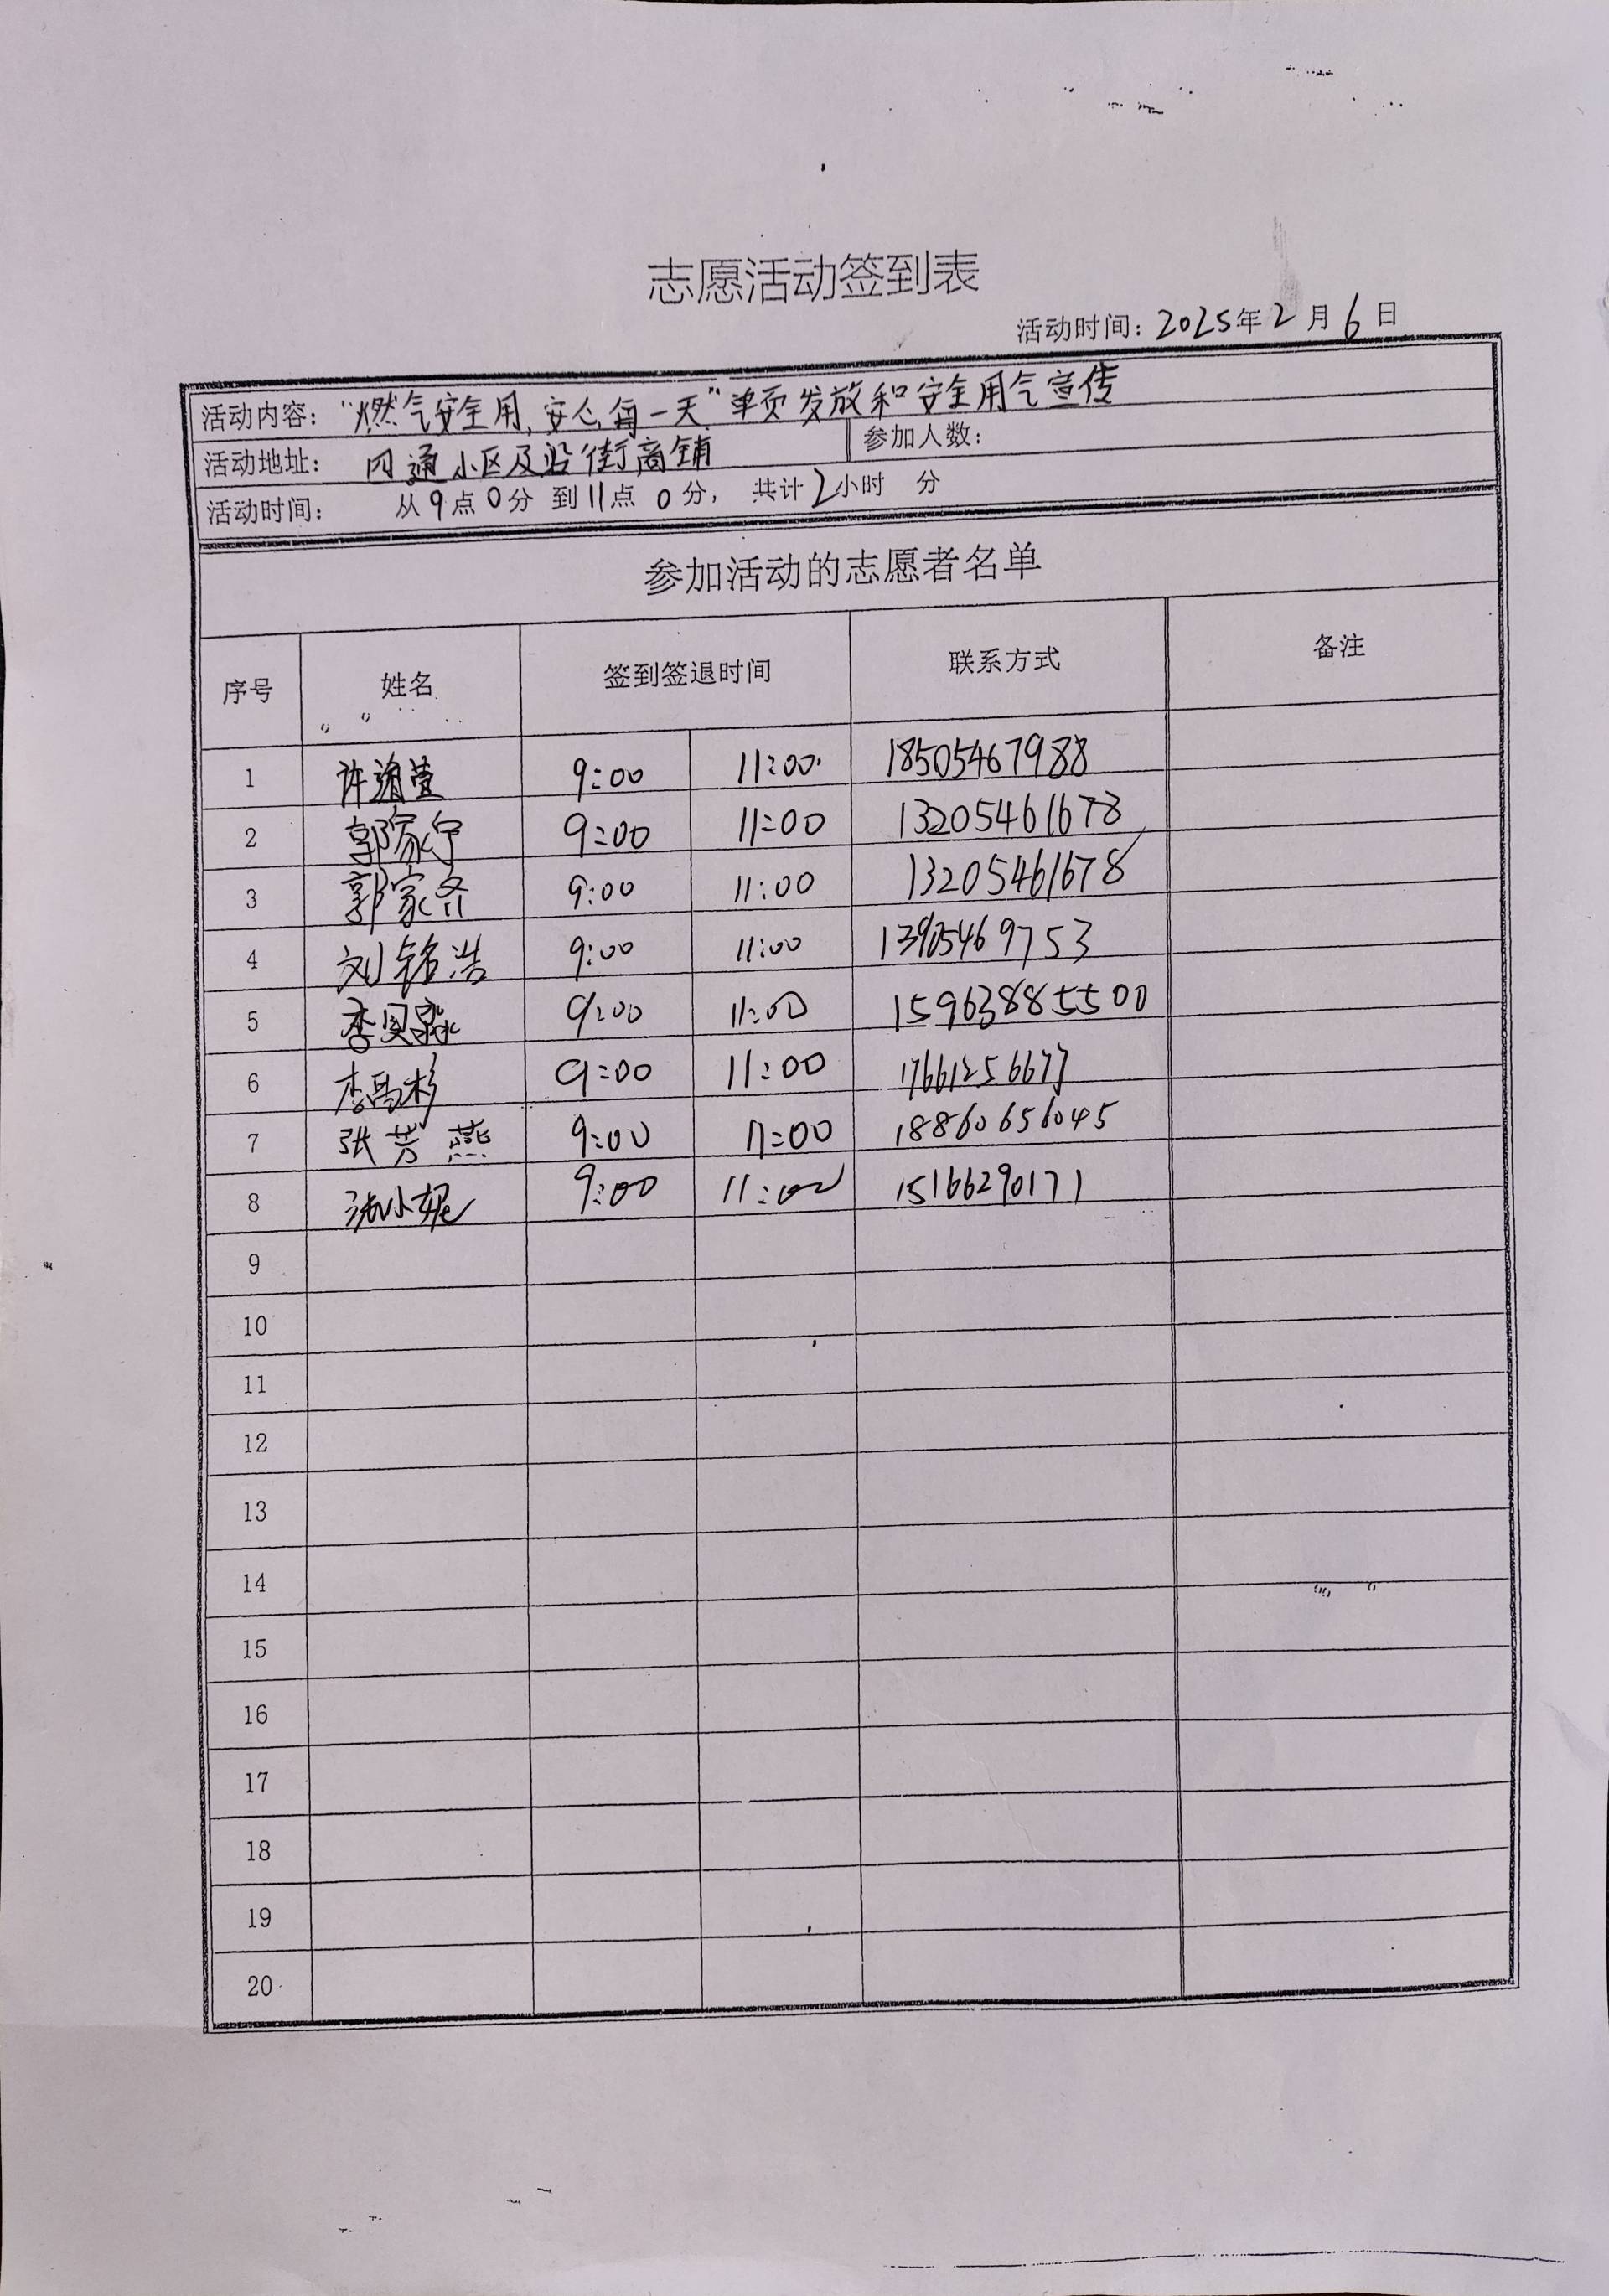 志愿活动签到表
活动时间：2025年2月6日
活动内容：“燃气安全用，安心每一天”单页发放和安全用气宣传
活动地址：四通小区及沿街商铺 参加人数：
活动时间： 从9点0分 到11点0分， 共计2小时 分
参加活动的志愿者名单
序号 姓名 签到签退时间 联系方式 备注
1 许 9:00 11:00 18505467988
2 郭家宁 9:00 11:00 13205461678
3 郭家齐 9:00 11:00 13205461678
4 刘铭浩 9:00 11:00 13905469753
5 李贝淼 9:00 11:00 15963885500
6 李昌彬 9:00 11:00 17661256677
7 张芳燕 9:00 11:00 18860656045
8 张小妮 9:00 11:00 15166290171
9
10
11
12
13
14
15
16
17
18
19
20